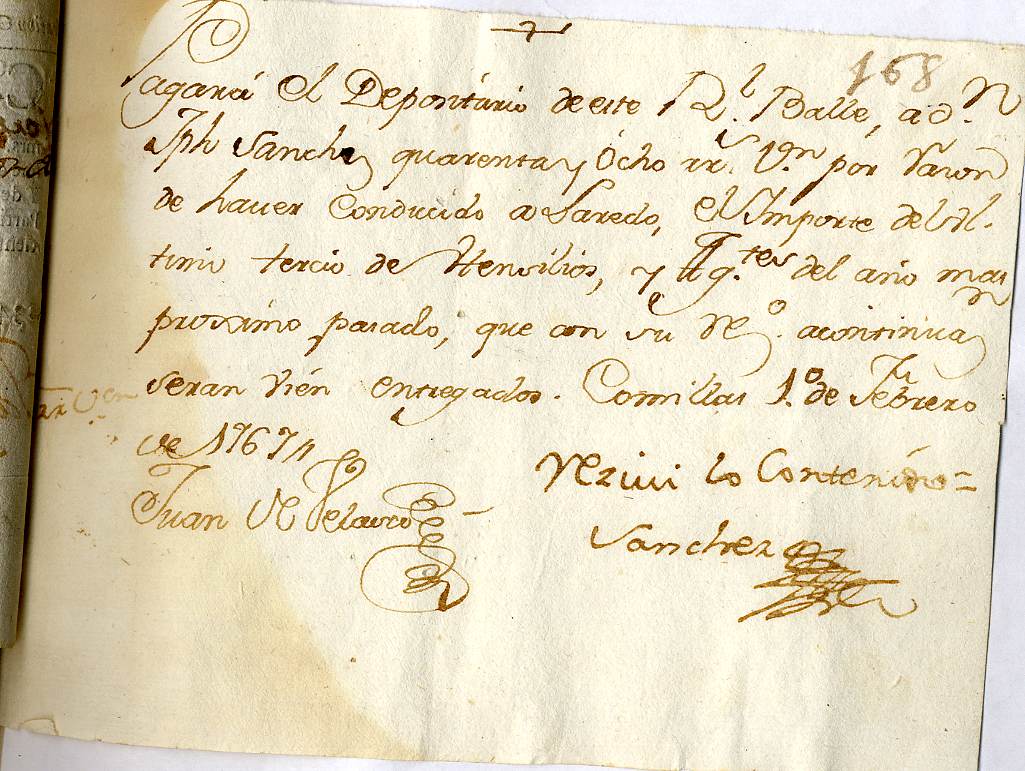 168
Pagará el Depositário de este Rl. Balle, a dn.
Jph Sanchez quarenta y Ocho rrs. Vn. por raron
de hauer Conducido a Laredo, el Importe del Vl-
timo tercio de Vtensilios, y Agtes. del año mas
prossimo pasado, que con su Reo. acontinuan
seran vién entregados. Comillas 1o. de Febrero
de 1767
Juan de
Reziui lo Contenido=
Sanchez